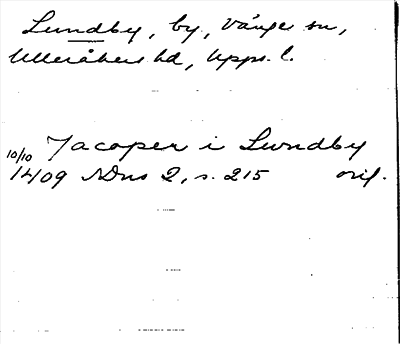 Lundby, by, Vänge sn,
Ulleråkers hd, Upps. l.
10/10 Jacoper i Lundby
1409 SDns 2, s. 215 orig.